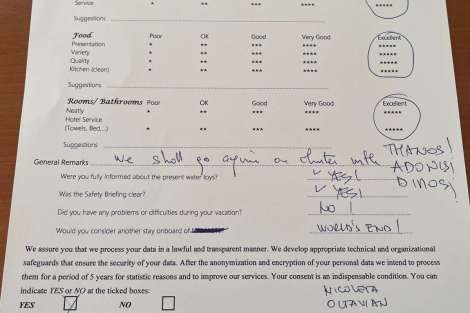 Service * ** *** **** *****
Suggestions
Food Poor OK Good Very Good Excellent
Presentation * ** *** **** *****
Variety * ** *** **** *****
Quality * ** *** **** *****
Kitchen (clean) * ** *** **** *****
Suggestions
Rooms/ Bathrooms Poor OK Good Very Good Excellent
Neatly * ** *** **** *****
Hotel Service
(Towels, Bed,...) * ** *** **** *****
Suggestions THANOS!
General Remarks We shall go again on charter with ADONIS!
DINOS!
Were you fully informed about the present water toys? YES!
Was the Safety Briefing clear? YES!
Did you have any problems or difficulties during your vacation? NO!
Would you consider another stay onboard of WORLD'S END!
We assure you that we process your data in a lawful and transparent manner. We develop appropriate technical and organizational
safeguards that ensure the security of your data. After the anonymization and encryption of your personal data we intend to process
them for a period of 5 years for statistic reasons and to improve our services. Your consent is an indispensable condition. You can
indicate YES or NO at the ticked boxes:
YES NO NICOLETA
OCTAVIAN